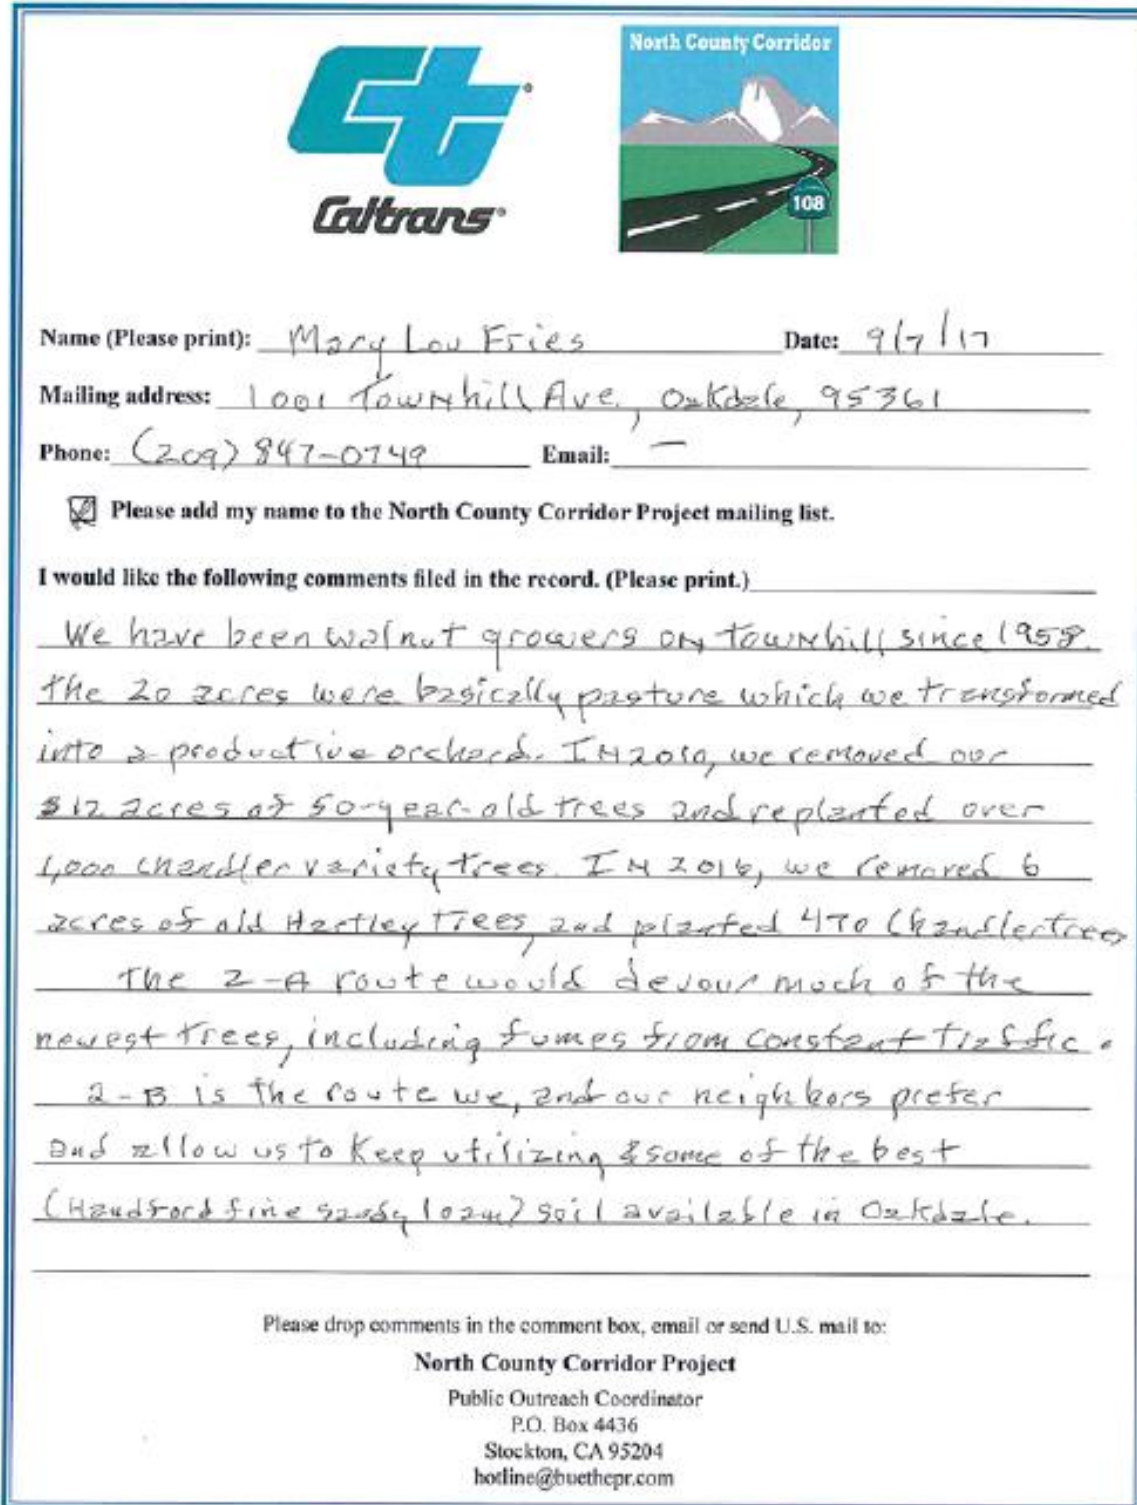 Ct
Caltrans
North County Corridor
108
Name (Please print): Mary Lou Fries Date: 9/7/17
Mailing address: 1001 Townhill Ave., Oakdale, 95361
Phone: (209) 847-0749 Email: —
Please add my name to the North County Corridor Project mailing list.
I would like the following comments filed in the record. (Please print.)
We have been walnut growers on Townhill since 1958.
The 20 acres were basically pasture which we transformed
into a productive orchard. IN 2010, we removed our
12 acres of 50-year-old trees and replanted over
1,000 Chandler variety trees. IN 2016, we removed 6
acres of old Hartley trees, and planted 470 Chandler trees
The 2-A route would devour much of the
newest trees, including fumes from constant traffic.
2-B is the route we, and our neighbors prefer
and allow us to keep utilizing some of the best
(Handford fine sandy loam) soil available in Oakdale.
Please drop comments in the comment box, email or send U.S. mail to:
North County Corridor Project
Public Outreach Coordinator
P.O. Box 4436
Stockton, CA 95204
hotline@buethepr.com